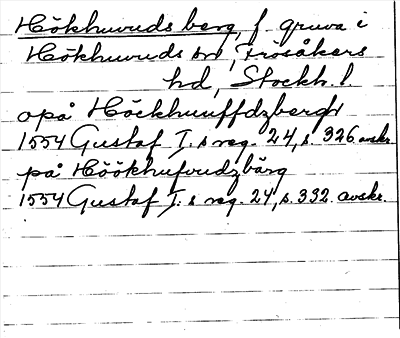 Hökhuvuds berg, f. gruva i
Hökhuvuds sn, Frösåkers
hd, Stockh. l.
opå Höckhuuffdzbergh
1554 Gustaf I.s reg. 24, s. 326 avskr.
på Höökhufvudzbärg
1554 Gustaf I.s reg. 24, s. 332. avskr.